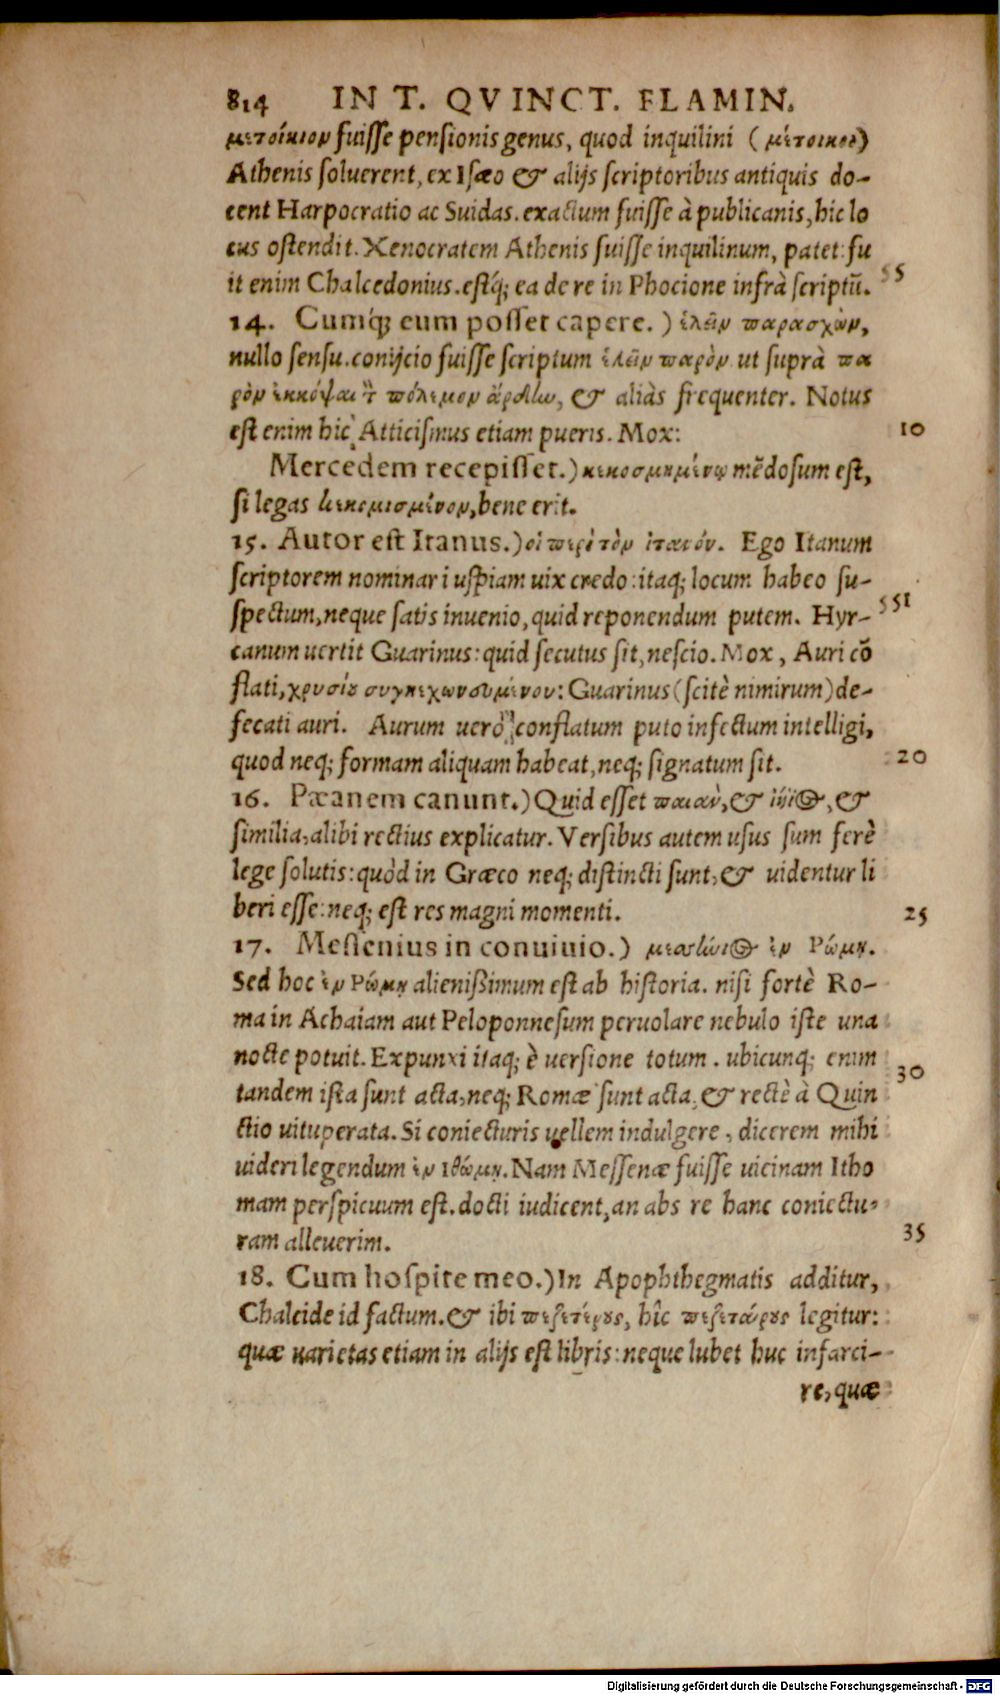 814 IN T. QVINCT. FLAMIN.
μετοίκιον fuisse pensionis genus, quod inquilini (μέτοικοι)
Athenis soluerent, ex Isæo & alijs scriptoribus antiquis do-
cent Harpocratio ac Suidas. exactum fuisse à publicanis, hic lo
cus ostendit. Xenocratem Athenis fuisse inquilinum, patet: fu
it enim Chalcedonius. estq́; ea de re in Phocione infrà scriptū.
55
14. Cumq́; eum posset capere.) ἑλεῖν παρασχὼν,
nullo sensu. conijcio fuisse scriptum ἑλεῖν παρὸν ut suprà πα
ρὸν ἐκκόψαι τ̀ πόλεμον ἄρδην, & aliàs frequenter. Notus
est enim hic Atticismus etiam pueris. Mox:
10
Mercedem recepisset.) κεκοσμημένῳ mēdosum est,
si legas κεκομισμένον, bene erit.
15. Autor est Itanus.) οἱ περὶ τὸν ἰτανόν. Ego Itanum
scriptorem nominari uspiam uix credo: itaq; locum habeo su-
spectum, neque satis inuenio, quid reponendum putem. Hyr-
551
canum uertit Guarinus: quid secutus sit, nescio. Mox, Auri cō
flati, χρυσίου συγκεχωνευμένου: Guarinus (scitè nimirum) de-
fecati auri. Aurum uerò conflatum puto infectum intelligi,
quod neq; formam aliquam habeat, neq; signatum sit.
20
16. Pæanem canunt.) Quid esset παιαὰν, & ἰήϊος, &
similia, alibi rectius explicatur. Versibus autem usus sum ferè
lege solutis: quòd in Græco neq; distincti sunt, & uidentur li
beri esse: neq; est res magni momenti.
25
17. Messenius in conuiuio.) μεσσήνιος ἐν Ρώμῃ.
Sed hoc ἐν Ρώμῃ alienißimum est ab historia. nisi fortè Ro-
ma in Achaiam aut Peloponnesum peruolare nebulo iste una
nocte potuit. Expunxi itaq; è uersione totum. ubicunq; enim
30
tandem ista sunt acta, neq; Romæ sunt acta, & rectè à Quin
ctio uituperata. Si coniecturis uellem indulgere, dicerem mihi
uideri legendum ἐν Ιθώμῃ. Nam Messenæ fuisse uicinam Itho
mam perspicuum est. docti iudicent, an abs re hanc coniectu-
35
ram alleuerim.
18. Cum hospite meo.) In Apophthegmatis additur,
Chalcide id factum. & ibi πεζετέρους, hîc πεζεταίρους legitur:
quæ uarietas etiam in alijs est libris: neque lubet huc infarci-
re, quæ
Digitalisierung gefördert durch die Deutsche Forschungsgemeinschaft - DFG